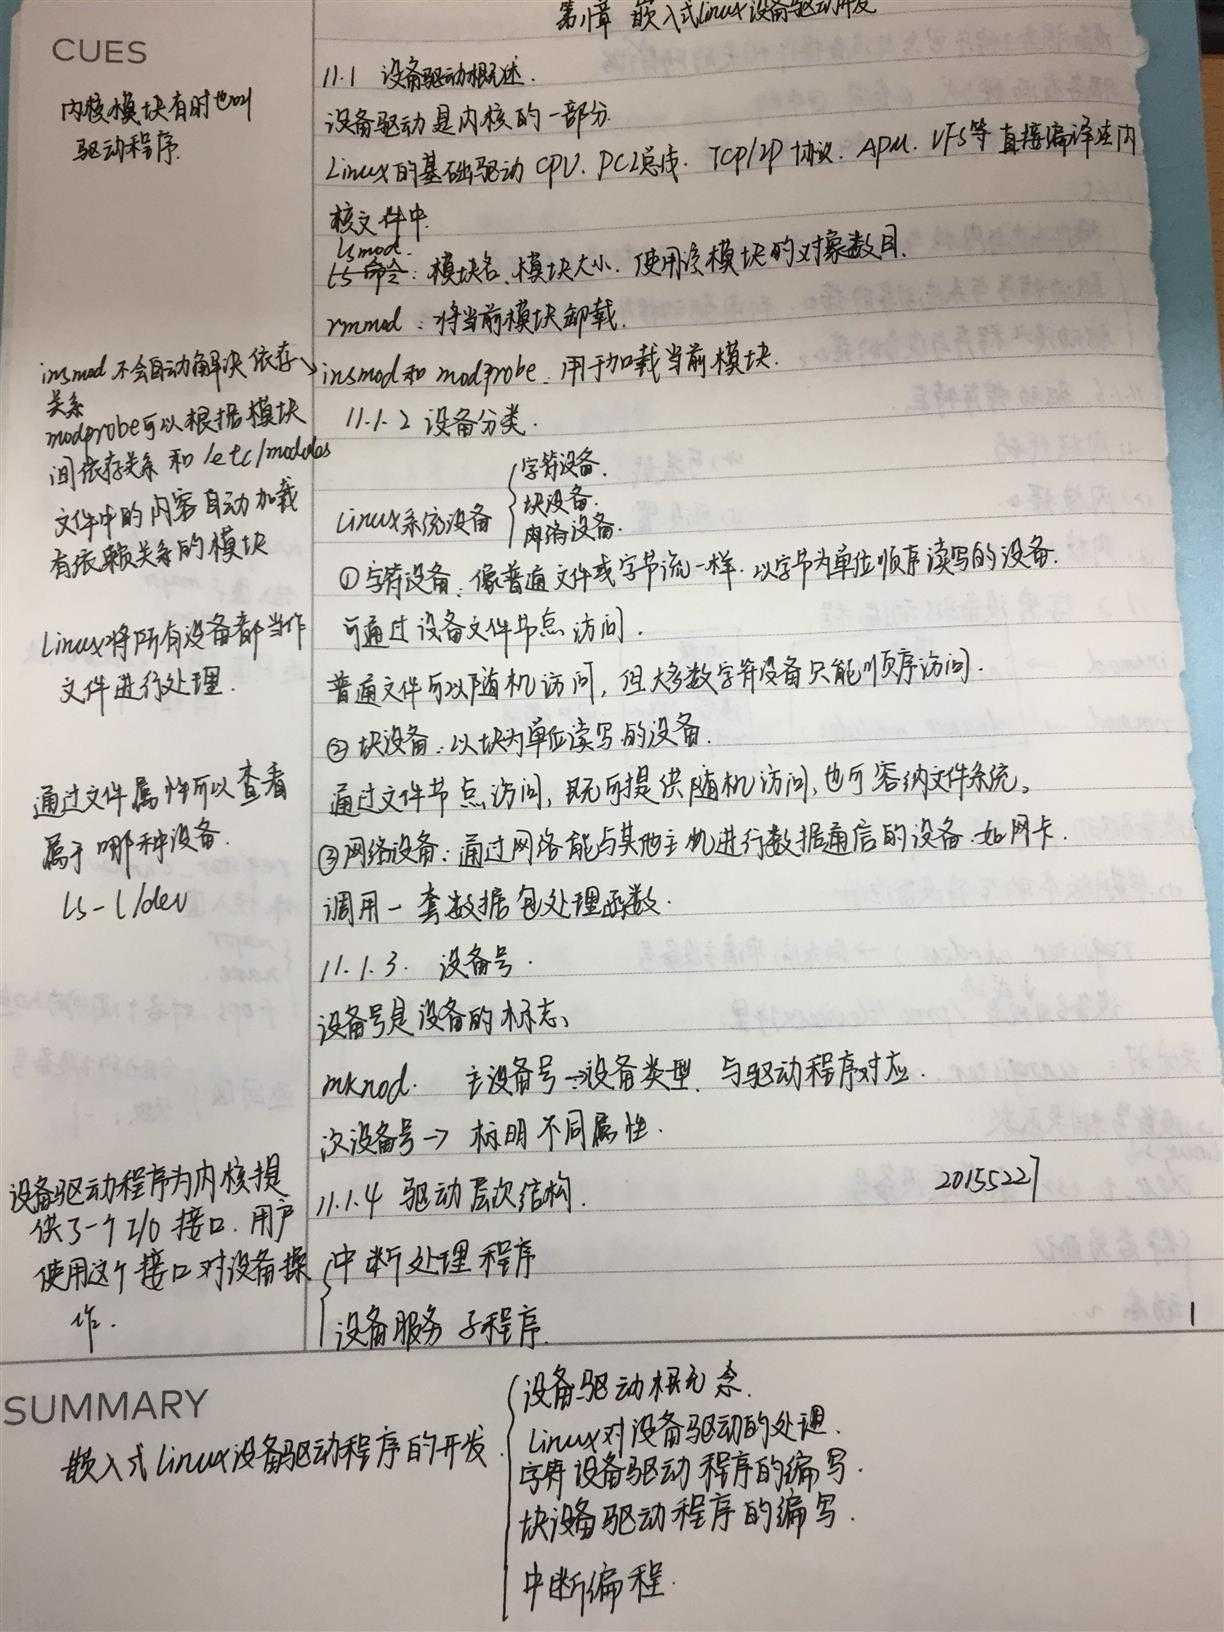 第11章 嵌入式Linux设备驱动开发
CUES
内核模块有时也叫
驱动程序.
11.1 设备驱动概述.
设备驱动是内核的一部分.
Linux的基础驱动 CPU. PCI总线. TCP/IP 协议. APM. VFS等 直接编译进内
核文件中.
lsmod.
ls 命令: 模块名、模块大小. 使用该模块的对象数目.
rmmod: 将当前模块卸载.
insmod和 modprobe. 用于加载当前模块.
insmod 不会自动解决依存
关系
modprobe可以根据模块
间依存关系 和 /etc/modules
文件中的内容自动加载
有依赖关系的模块
11.1.2 设备分类.
Linux系统设备
字符设备.
块设备.
网络设备.
①字符设备: 像普通文件或字节流一样. 以字节为单位顺序读写的设备.
可通过设备文件节点访问.
普通文件可以随机访问, 但大多数字符设备只能顺序访问.
Linux将所有设备都当作
文件进行处理.
②块设备: 以块为单位读写的设备.
通过文件节点访问, 既可提供随机访问, 也可容纳文件系统。
③网络设备: 通过网络能与其他主机进行数据通信的设备. 如网卡.
调用一套数据包处理函数.
通过文件属性可以查看
属于哪种设备.
ls -l /dev
11.1.3. 设备号.
设备号是设备的标志、
mknod. 主设备号→设备类型、与驱动程序对应.
次设备号→ 标明不同属性.
11.1.4 驱动层次结构.
20155227
中断处理程序
设备服务子程序.
设备驱动程序为内核提
供了一个I/O 接口. 用户
使用这个接口对设备操
作.
1
SUMMARY
嵌入式Linux设备驱动程序的开发
设备驱动概念.
Linux对设备驱动的处理.
字符设备驱动程序的编写.
块设备驱动程序的编写.
中断编程.